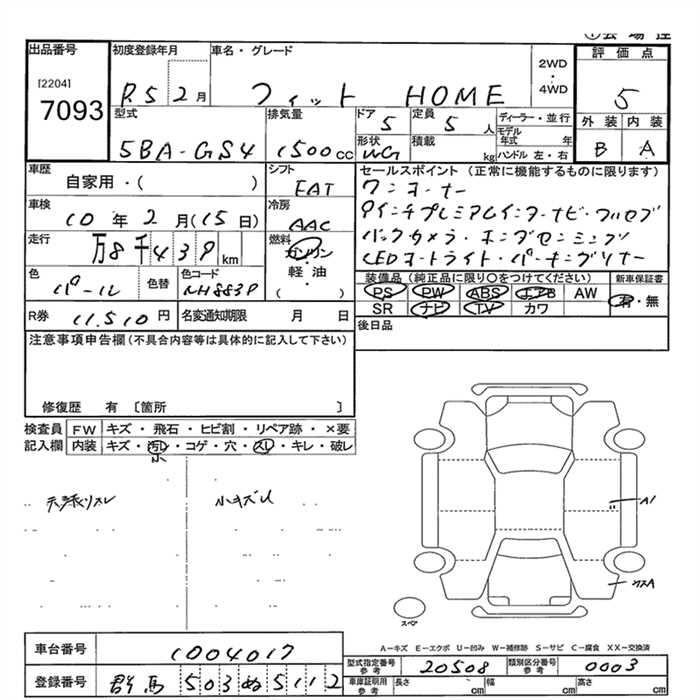 出品番号
[2204]
7093
初度登録年月
R5 2月
車名・グレード
フィット HOME
2WD・4WD
評価点
5
外装 内装
B A
型式
5BA-GS4
排気量
1500cc
ドア
5
定員
5人
形状
WG
積載
kg
ディーラー・並行
モデル年式 年
ハンドル 左・右
車歴
自家用・( )
シフト
FAT
車検
10年2月(15日)
冷房
AAC
走行
万8千439km
燃料
ガソリン
軽油
( ・ )
色
パール
色替
色コード
NH883P
R券
11,510円
名変通知期限 月 日
セールスポイント (正常に機能するものに限ります)
ワンオーナー
9インチプレミアムインターナビ・フルセグ
バックカメラ・ホンダセンシング
LEDオートライト・パーキングソナー
装備品 (純正品に限り〇をつけてください)
新車保証書
PS PW ABS エアB AW
有・無
SR ナビ TV カワ
後日品
注意事項申告欄(不具合内容等は具体的に記入して下さい)
修復歴 有 〔箇所 〕
検査員記入欄
FW キズ・飛石・ヒビ割・リペア跡・×要
内装 キズ・汚レ・コゲ・穴・スレ・キレ・破レ
小
天張リスレ
小キズU
A1
スペア
A-キズ E-エクボ U-凹み W-補修跡 S-サビ C-腐食 XX-交換済
車台番号
1004017
登録番号
群馬503ぬ5112
型式指定番号
参考
20508
類別区分番号
参考
0003
車庫証明用
参考
長さ cm 幅 cm 高さ cm